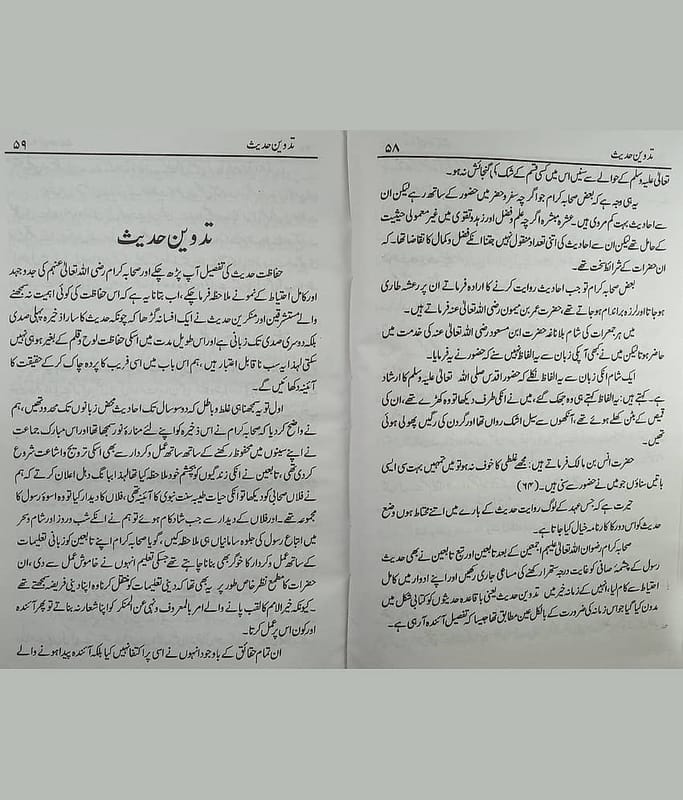 تدوین حدیث ۵۸
تعالیٰ علیہ وسلم کے حوالے سے سنیں اس میں کسی قسم کے شک کی گنجائش نہ ہو۔
یہ ہی وجہ ہے کہ بعض صحابہ کرام جو اگرچہ سفر و حضر میں حضور کے ساتھ رہے لیکن ان
سے احادیث بہت کم مروی ہیں۔ عشرہ مبشرہ اگرچہ علم وفضل اور زہد وتقویٰ میں غیر معمولی حیثیت
کے حامل تھے لیکن ان سے احادیث کی اتنی تعداد منقول نہیں جتنا انکے فضل وکمال کا تقاضا تھا کہ
ان حضرات کے شرائط سخت تھے۔
بعض صحابہ کرام تو جب احادیث روایت کرنے کا ارادہ فرماتے ان پر رعشہ طاری
ہو جاتا اور لرزہ براندام ہو جاتے تھے حضرت عمر بن میمون رضی اللہ تعالیٰ عنہ فرماتے ہیں۔
میں ہر جمعرات کی شام بلا ناغہ حضرت ابن مسعود رضی اللہ تعالیٰ عنہ کی خدمت میں
حاضر ہوتا لیکن میں نے کبھی آپکی زبان سے یہ الفاظ نہیں سنے کہ حضور نے یہ فرمایا۔
ایک شام انکی زبان سے یہ الفاظ نکلے کہ حضور اقدس صلی اللہ تعالیٰ علیہ وسلم کا ارشاد
ہے۔ کہتے ہیں: یہ الفاظ کہتے ہی وہ جھک گئے، میں نے انکی طرف دیکھا تو وہ کھڑے تھے، ان کی
قمیص کے بٹن کھلے ہوئے تھے، آنکھوں سے سیل اشک رواں تھا اور گردن کی رگیں پھولی ہوئی
تھیں۔
حضرت انس بن مالک فرماتے ہیں: مجھے غلطی کا خوف نہ ہوتو میں تمہیں بہت سی ایسی
باتیں سناؤں جو میں نے حضور سے سنی ہیں۔ (۶۴)
حیرت ہے کہ جس عہد کے لوگ روایت حدیث کے بارے میں اتنے محتاط ہوں وضع
حدیث کو اس دور کا کارنامہ خیال کیا جاتا ہے۔
صحابہ کرام رضوان اللہ تعالیٰ علیہم اجمعین کے بعد تابعین اور تبع تابعین نے بھی حدیث
رسول کے چشمۂ صافی کو غایت درجہ ستھرا رکھنے کی مساعی جاری رکھیں اور اپنے ادوار میں کامل
احتیاط سے کام لیا، انہیں کے زمانہ خیر میں تدوین حدیث یعنی باقاعدہ حدیثوں کو کتابی شکل میں
مدون کیا گیا جو اس زمانہ کی ضرورت کے بالکل عین مطابق تھا جیسا کہ تفصیل آئندہ آرہی ہے۔
تدوین حدیث ۵۹
تدوین حدیث
حفاظت حدیث کی تفصیل آپ پڑھ چکے اور صحابہ کرام رضی اللہ تعالیٰ عنہم کی جدوجہد
اور کامل احتیاط کے نمونے ملاحظہ فرما چکے، اب بتانا یہ ہے کہ اس حفاظت کی کوئی اہمیت نہ سمجھنے
والے مستشرقین اور منکرین حدیث نے ایک افسانہ گڑھا کہ چونکہ حدیث کا سارا ذخیرہ پہلی صدی
بلکہ دوسری صدی تک زبانی ہے اور اس طویل مدت میں اسکی حفاظت لوح وقلم کے بغیر ہو ہی نہیں
سکتی لہٰذا یہ سب ناقابل اعتبار ہیں، ہم اس باب میں اسی فریب کا پردہ چاک کر کے حقیقت کا
آئینہ دکھائیں گے۔
اول تو یہ سمجھنا ہی غلط وباطل کہ دو سو سال تک احادیث محض زبانوں تک محدود تھیں، ہم
نے واضح کر دیا کہ صحابہ کرام نے اس ذخیرہ کو اپنے لئے منارۂ نور سمجھا تھا اور اس مبارک جماعت
نے اپنے سینوں میں محفوظ رکھنے کے ساتھ ساتھ عمل وکردار سے بھی اسکی ترویج واشاعت شروع
کردی تھی، تابعین نے انکی زندگیوں کو بچشم خود ملاحظہ کیا تھا لہذا بباںگ دہل اعلان کرتے کہ ہم
نے فلاں صحابی کو دیکھا تو انکی حیات طیبہ سنت نبوی کا آئینہ تھی، فلاں کا دیدار کیا تو وہ اسوۂ رسول کا
مجموعہ تھے۔ اور فلاں کے دیدار سے جب شادکام ہوئے تو ہم نے انکے شب وروز اور شام وسحر
میں اتباع رسول کی جلوہ سامانیاں ہی ملاحظہ کیں، گویا صحابہ کرام اپنے تابعین کو زبانی تعلیمات
کے ساتھ عمل وکردار کا خوگر بھی بنانا چاہتے تھے جسکی تعلیم انہوں نے خاموش عمل سے دی، ان
حضرات کا مطمح نظر خاص طور پر یہ بھی تھا کہ دینی تعلیمات کو منتقل کرنا وہ اپنا دینی فریضہ سمجھتے تھے
۔ کیونکہ خیر الامم کا لقب پانے والے امر بالمعروف ونہی عن المنکر کو اپنا شعار نہ بناتے تو پھر آئندہ
اور کون اس پر عمل کرتا۔
ان تمام حقائق کے باوجود انہوں نے اسی پر اکتفا نہیں کیا بلکہ آئندہ پیدا ہونے والے